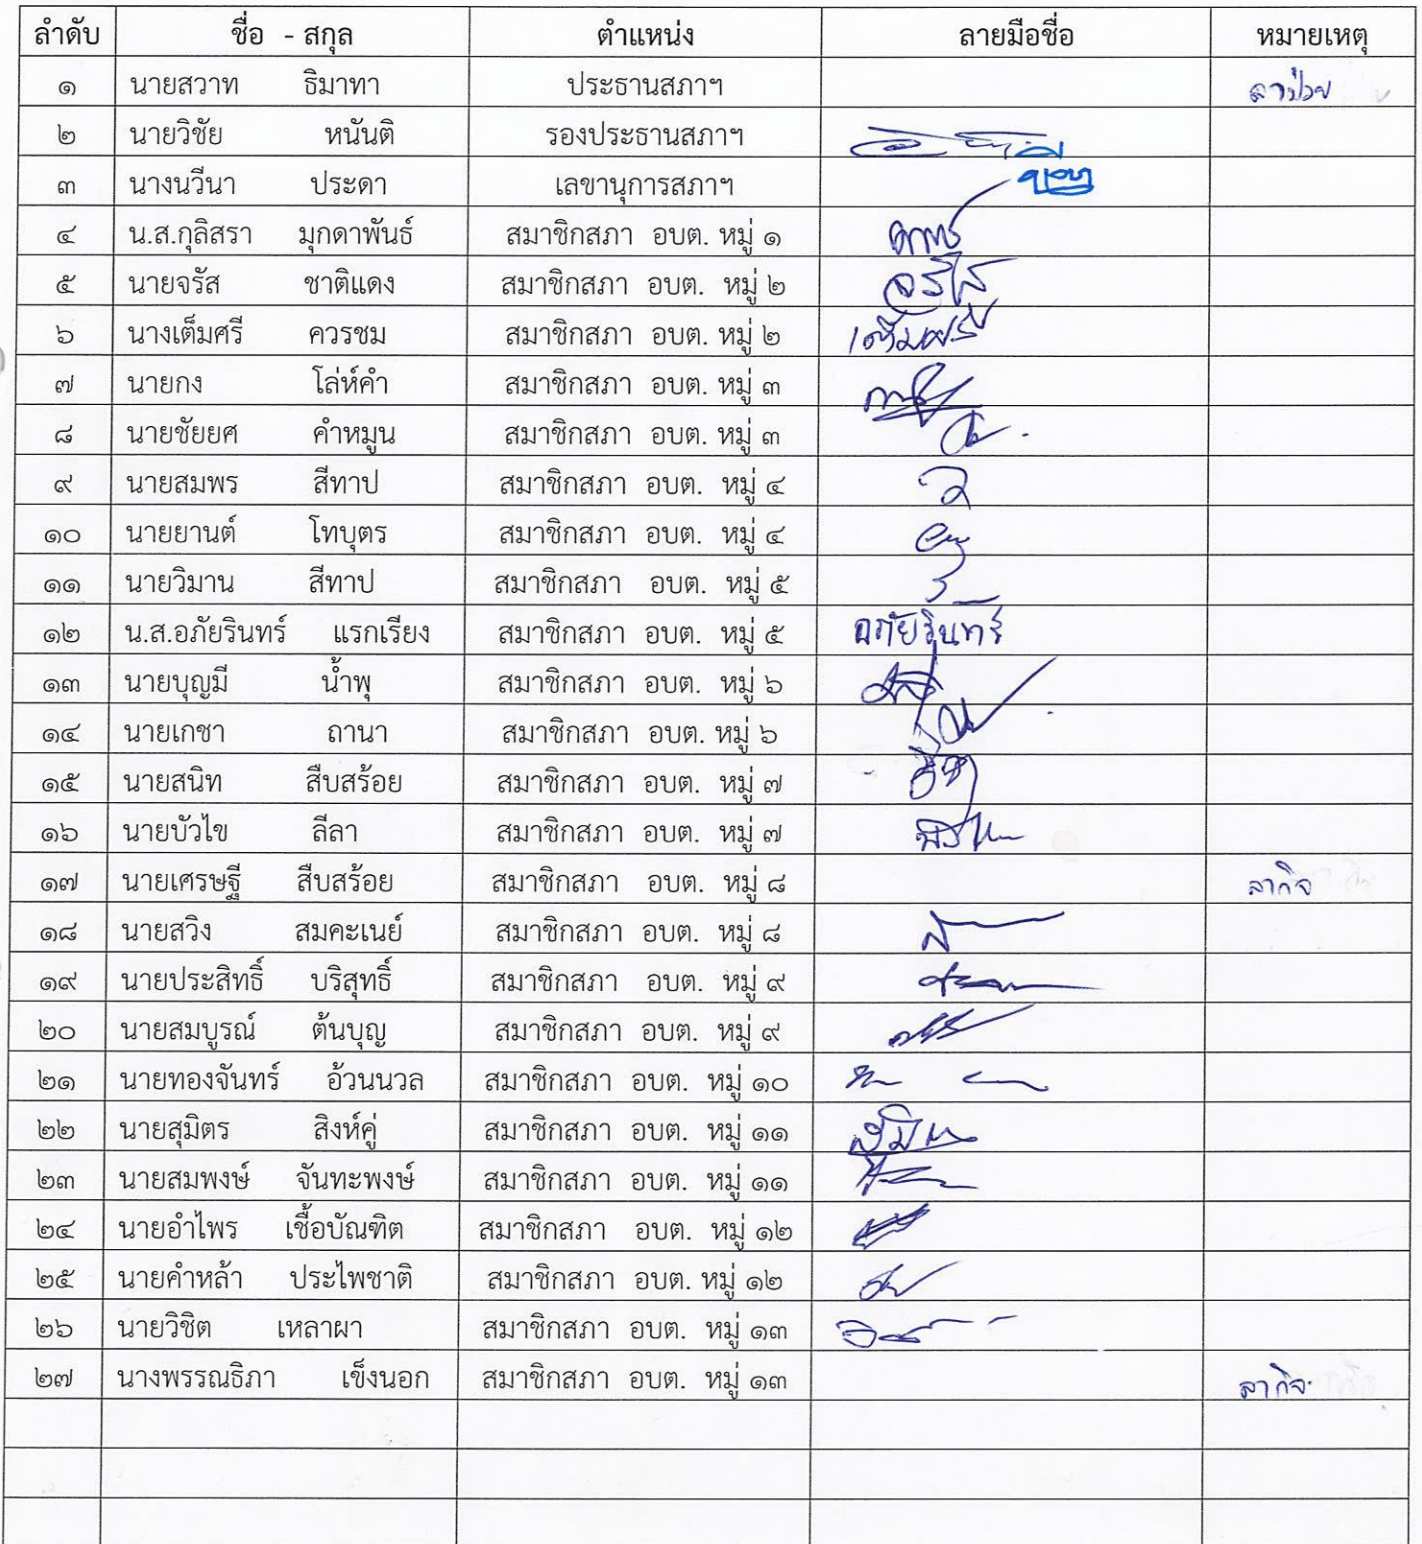 ลำดับ ชื่อ - สกุล ตำแหน่ง ลายมือชื่อ หมายเหตุ
๑ นายสวาท ธิมาทา ประธานสภาฯ ลาป่วย
๒ นายวิชัย หนันติ รองประธานสภาฯ
๓ นางนวีนา ประดา เลขานุการสภาฯ
๔ น.ส.กุลิสรา มุกดาพันธ์ สมาชิกสภา อบต. หมู่ ๑
๕ นายจรัส ชาติแดง สมาชิกสภา อบต. หมู่ ๒ จรัส
๖ นางเต็มศรี ควรชม สมาชิกสภา อบต. หมู่ ๒ เต็มศรี
๗ นายกง โล่ห์คำ สมาชิกสภา อบต. หมู่ ๓
๘ นายชัยยศ คำหมูน สมาชิกสภา อบต. หมู่ ๓
๙ นายสมพร สีทาป สมาชิกสภา อบต. หมู่ ๔
๑๐ นายยานต์ โทบุตร สมาชิกสภา อบต. หมู่ ๔
๑๑ นายวิมาน สีทาป สมาชิกสภา อบต. หมู่ ๕
๑๒ น.ส.อภัยรินทร์ แรกเรียง สมาชิกสภา อบต. หมู่ ๕ อภัยรินทร์
๑๓ นายบุญมี น้ำพุ สมาชิกสภา อบต. หมู่ ๖
๑๔ นายเกชา ถานา สมาชิกสภา อบต. หมู่ ๖
๑๕ นายสนิท สืบสร้อย สมาชิกสภา อบต. หมู่ ๗
๑๖ นายบัวไข ลีลา สมาชิกสภา อบต. หมู่ ๗
๑๗ นายเศรษฐี สืบสร้อย สมาชิกสภา อบต. หมู่ ๘ ลากิจ
๑๘ นายสวิง สมคะเนย์ สมาชิกสภา อบต. หมู่ ๘
๑๙ นายประสิทธิ์ บริสุทธิ์ สมาชิกสภา อบต. หมู่ ๙
๒๐ นายสมบูรณ์ ต้นบุญ สมาชิกสภา อบต. หมู่ ๙
๒๑ นายทองจันทร์ อ้วนนวล สมาชิกสภา อบต. หมู่ ๑๐
๒๒ นายสุมิตร สิงห์คู่ สมาชิกสภา อบต. หมู่ ๑๑
๒๓ นายสมพงษ์ จันทะพงษ์ สมาชิกสภา อบต. หมู่ ๑๑
๒๔ นายอำไพร เชื้อบัณฑิต สมาชิกสภา อบต. หมู่ ๑๒
๒๕ นายคำหล้า ประไพชาติ สมาชิกสภา อบต. หมู่ ๑๒
๒๖ นายวิชิต เหลาผา สมาชิกสภา อบต. หมู่ ๑๓
๒๗ นางพรรณธิภา เข็งนอก สมาชิกสภา อบต. หมู่ ๑๓ ลากิจ